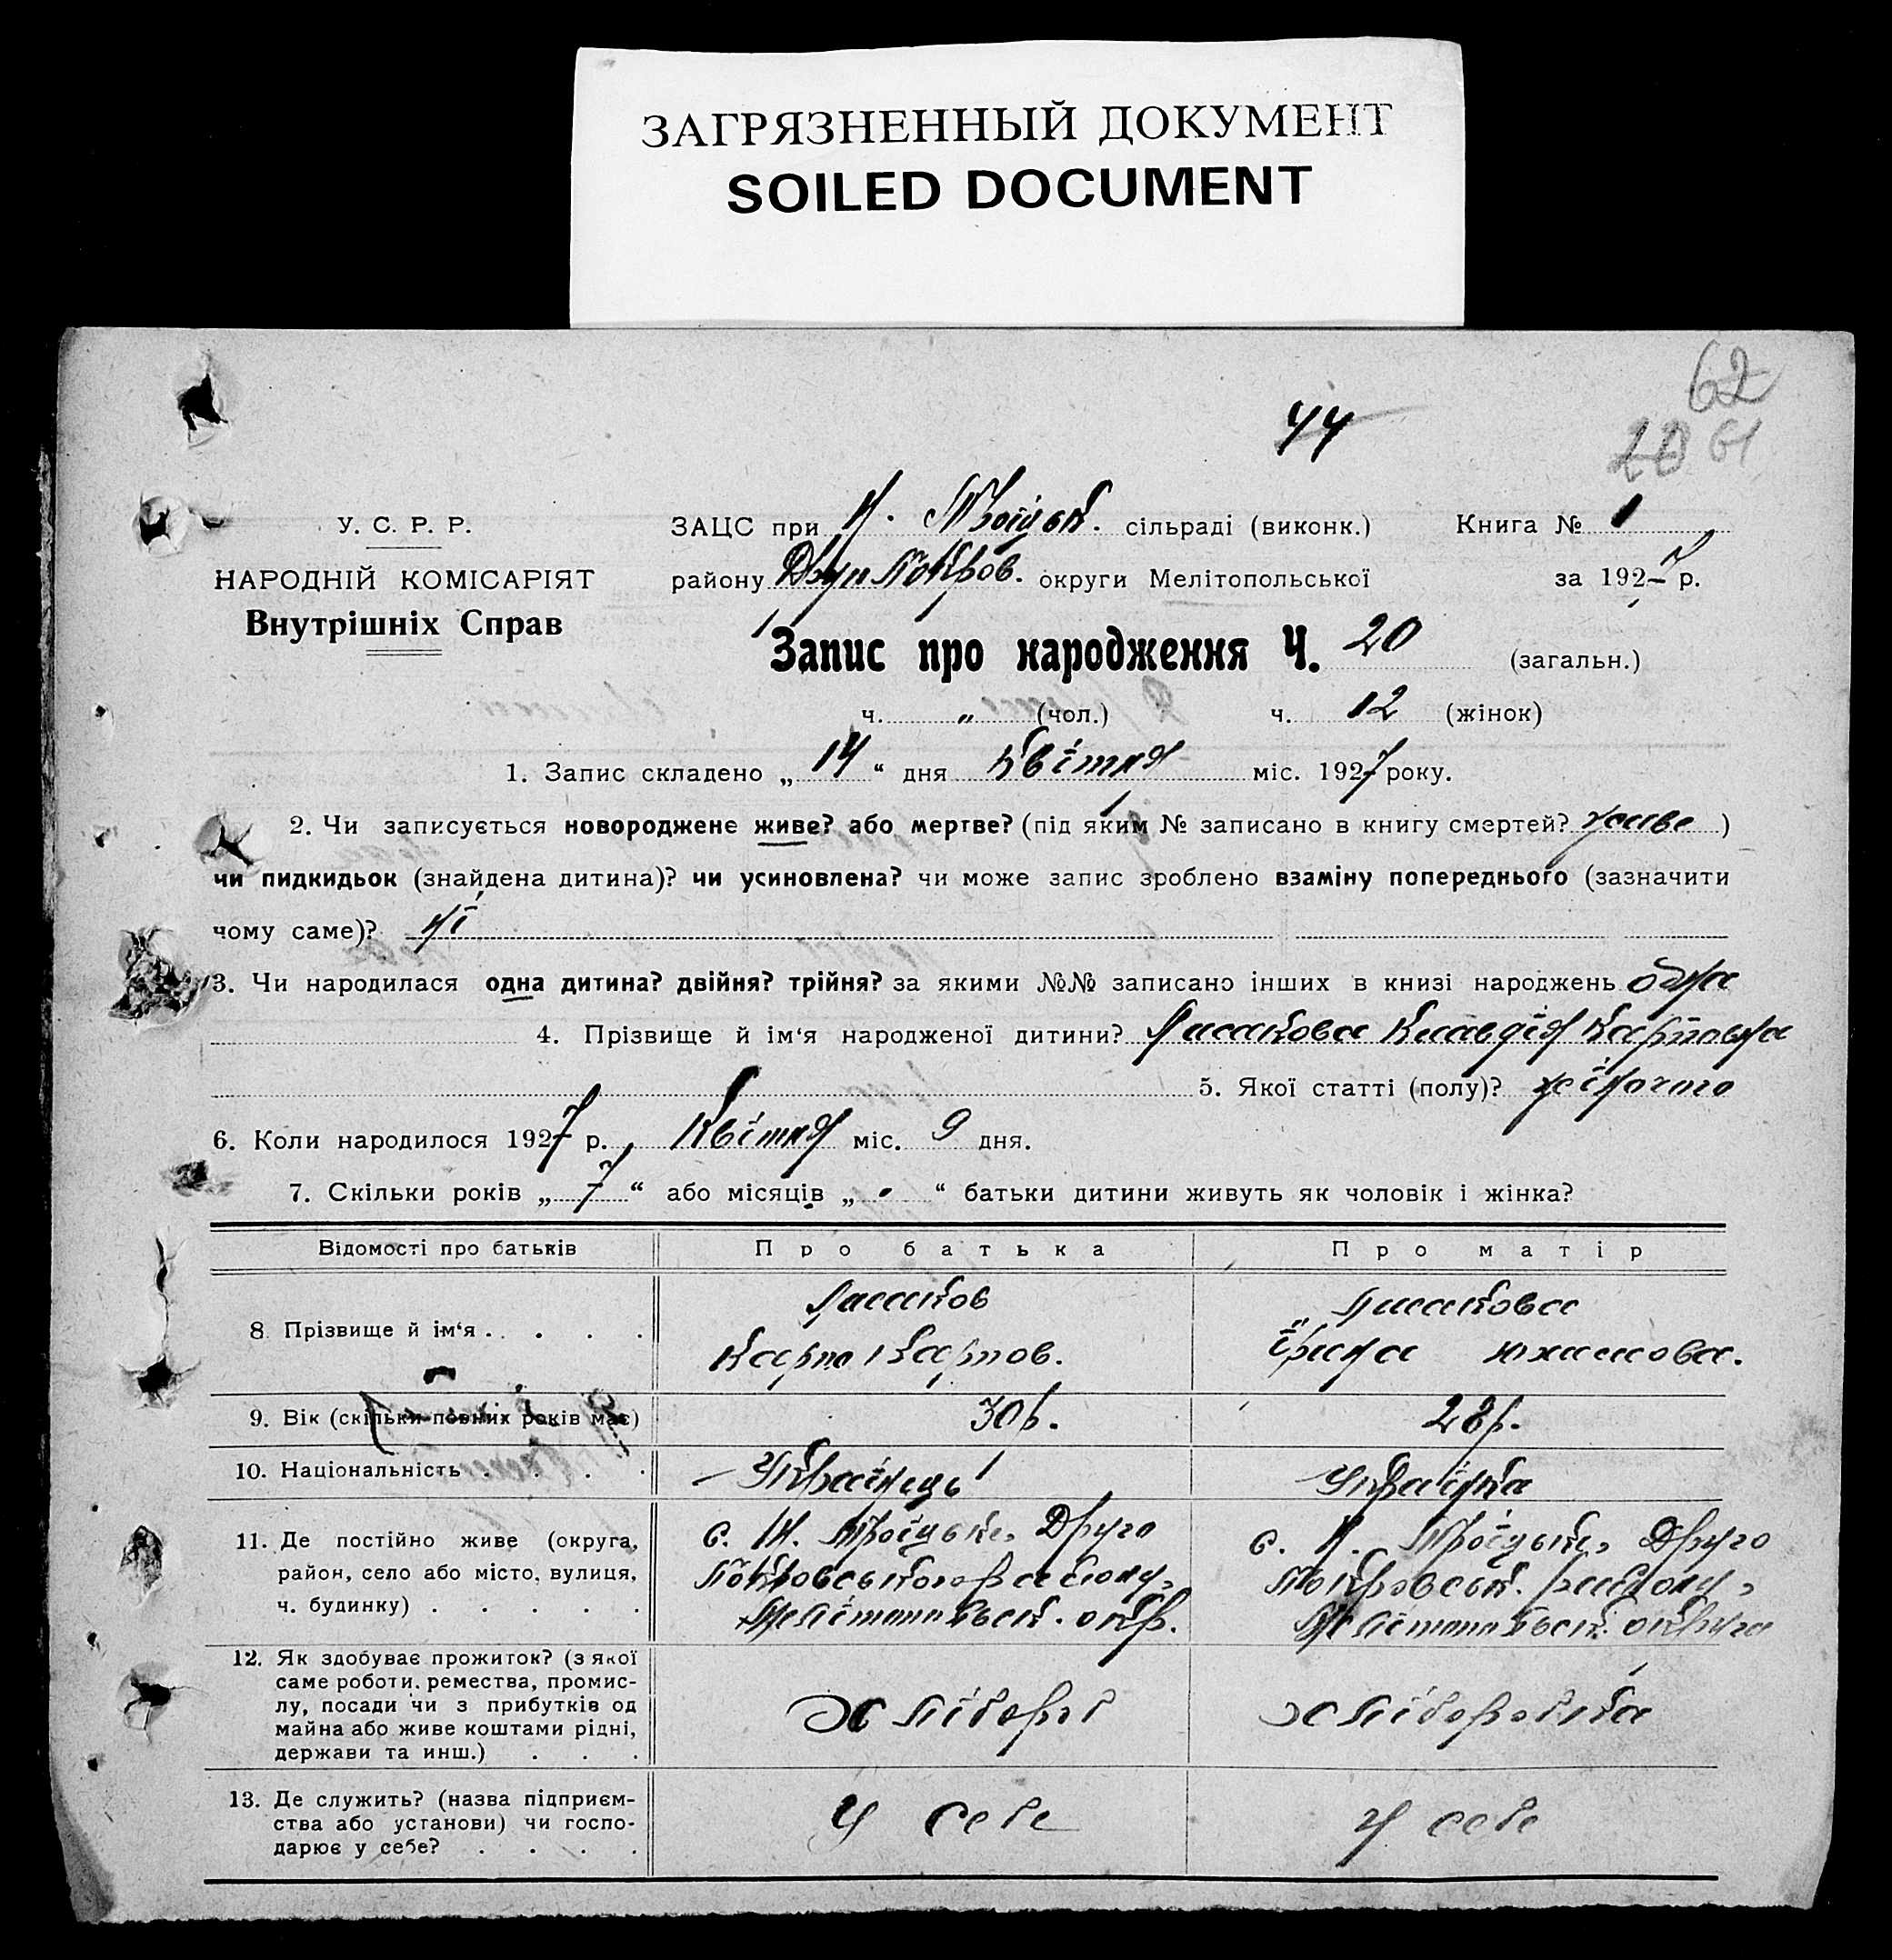 ЗАГРЯЗНЕННЫЙ ДОКУМЕНТ
SOILED DOCUMENT
62
44
20 61
У. С. Р. Р.
НАРОДНІЙ КОМІСАРІЯТ
Внутрішніх Справ
ЗАЦС при Н. Троїцьк. сільраді (виконк.) Книга № 1
району Друг Покров. округи Мелітопольської за 1927 р.
Запис про народження Ч. 20 (загальн.)
ч. „ (чол.) ч. 12 (жінок)
1. Запис складено „ 14 “ дня Квітня міс. 1927 року.
2. Чи записується новороджене живе? або мертве? (під яким № записано в книгу смертей? живе )
чи пидкидьок (знайдена дитина)? чи усиновлена? чи може запис зроблено взаміну попереднього (зазначити
чому саме)? ні
3. Чи народилася одна дитина? двійня? трійня? за якими №№ записано інших в книзі народжень одна
4. Прізвище й ім‘я народженої дитини? Лисакова Клавдія Карповна
5. Якої статті (полу)? жіночого
6. Коли народилося 1927 р. Квітня міс. 9 дня.
7. Скільки років „ 7 “ або місяців „ “ батьки дитини живуть як чоловік і жінка?
Відомості про батьків Про батька Про матір
8 Прізвище й ім‘я . . . . .
Лисаков
Карпо Карпов.
Лисакова
Їрина юхимова.
9. Вік (скільки повних років має) 30 р. 28 р.
10. Національність . . . . Українець Українка
11. Де постійно живе (округа,
район, село або місто, вулиця,
ч. будинку) . . . . .
с. Н. Троїцьке, Друго
Покровського району,
Мелітопольськ. окр.
с. Н. Троїцьке, Друго
Покровськ. району,
Мелітопольськ. округа
12. Як здобуває прожиток? (з якої
саме роботи, ремества, промис-
лу, посади чи з прибутків од
майна або живе коштами рідні,
держави та инш.) . . .
Хлібороб
хлібороби
13. Де служить? (назва підприєм-
ства або установи) чи госпо-
дарює у себе? . . . .
У себе
У себе